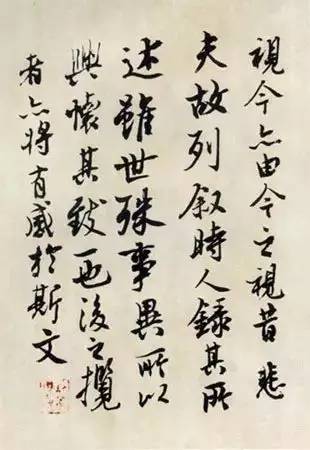 視今亦由今之視昔悲
夫故列叙時人錄其所
述雖世殊事異所以
興懷其致一也後之攬
者亦將有感於斯文